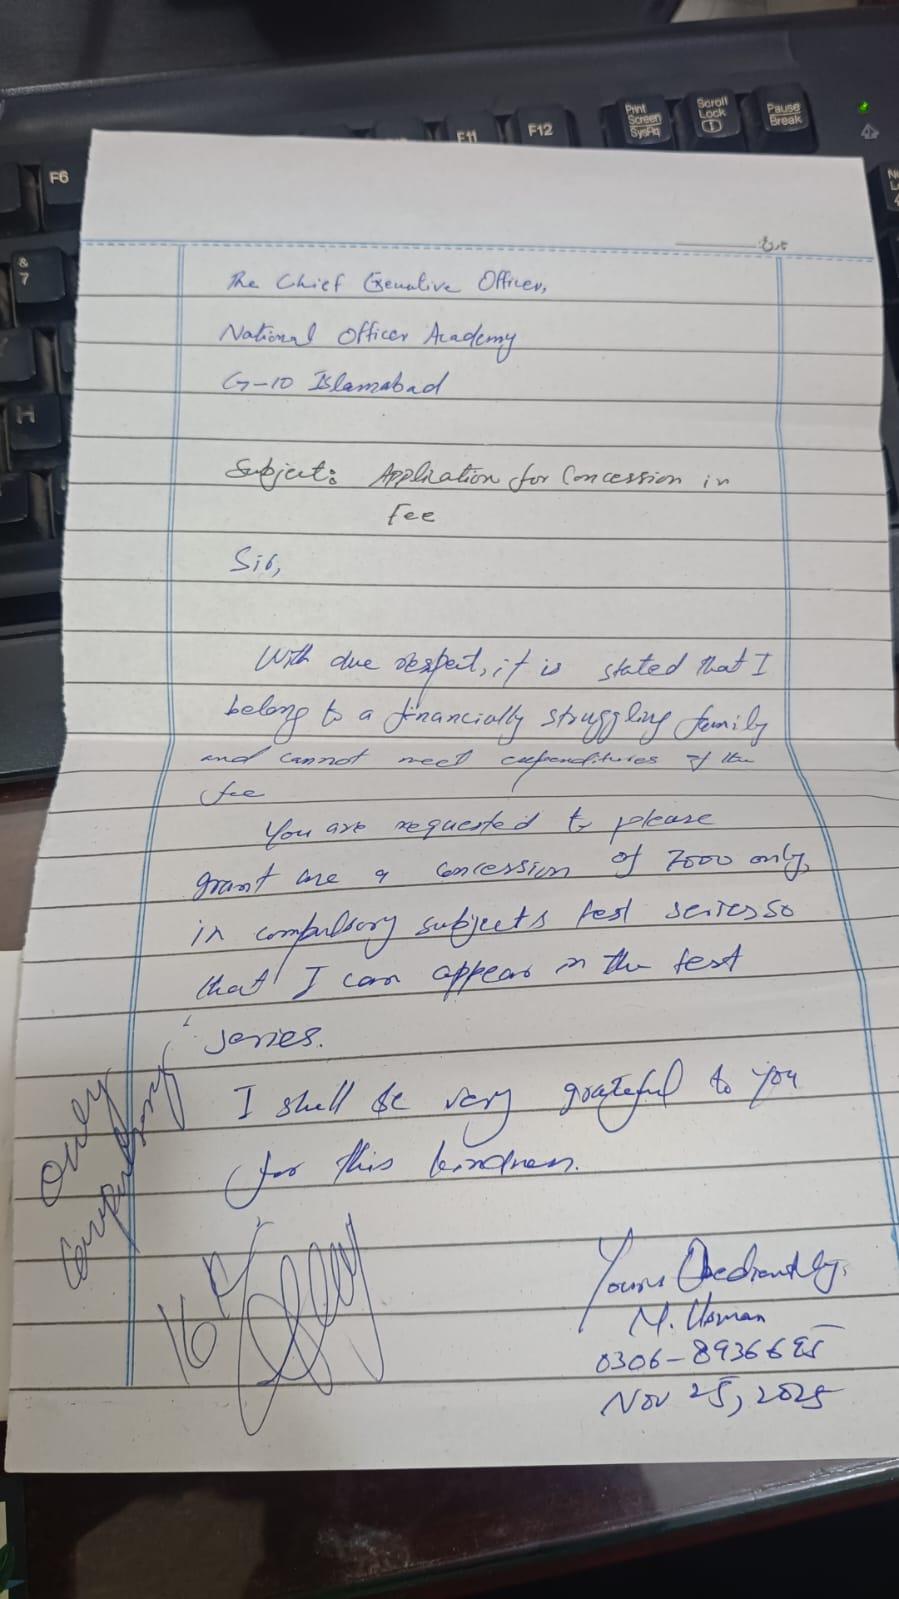 F6
F11
F12
Print
Screen
SysRq
Scroll
Lock
Pause
Break
&
7
H
The Chief Executive Officer,
National Officer Academy
G-10 Islamabad
Subject: Application for Concession in
Fee
Sir,
With due respect, it is stated that I
belong to a financially struggling family
and cannot meet expenditures of the
fee
You are requested to please
grant me a concession of 7000 only,
in compulsory subjects test series so
that I can appear in the test
series.
I shall be very grateful to you
for this kindness.
Only
Compulsory
Yours Obediently,
M. Usman
0306-8936695
Nov 25, 2025